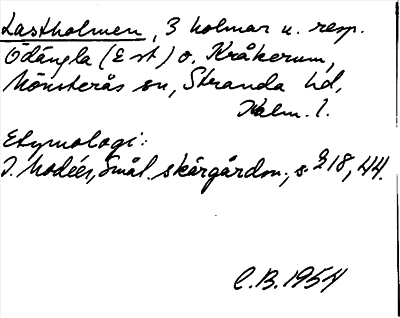 Lastholmen, 3 holmar u. resp.
Ödängla (E st) o. Kråkerum,
Mönsterås sn, Stranda hd,
Kalm. l.
Etymologi:
I. Modéer, Smål. skärgårdsn., s. 18, 44.
C.B. 1954